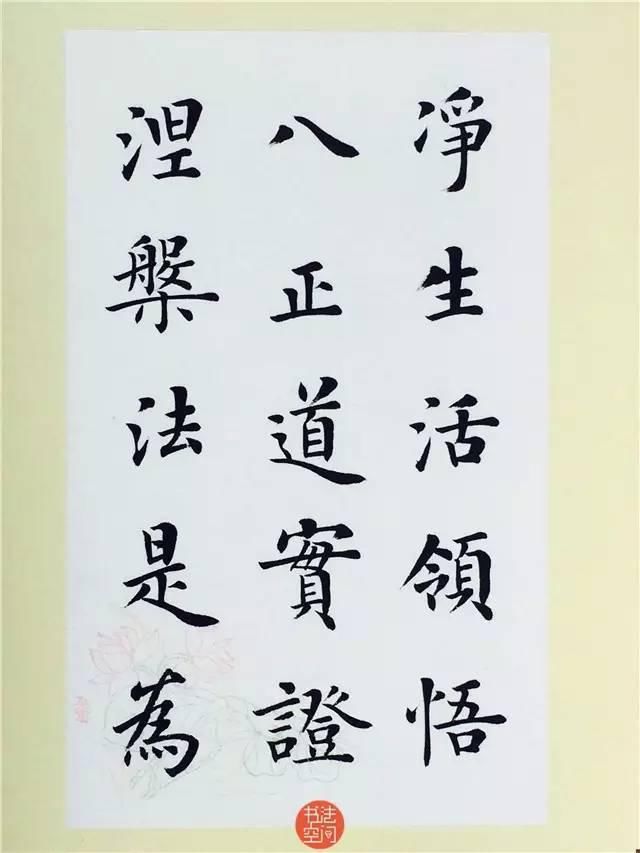 淨生活領悟
八正道實證
涅槃法是為
书法空间